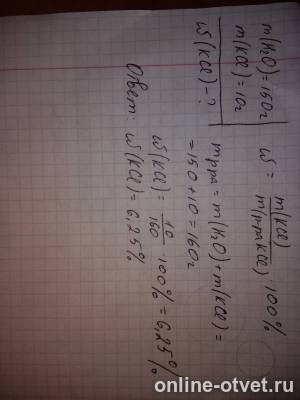 m(H₂O) = 150г
m(KCl) = 10г
ω(KCl) - ?
ω = m(KCl) / m(р-ра KCl) · 100%
m р-ра = m(H₂O) + m(KCl) =
= 150 + 10 = 160г
ω(KCl) = 10/160 · 100% = 6,25%
Ответ: ω(KCl) = 6,25%
online-otvet.ru